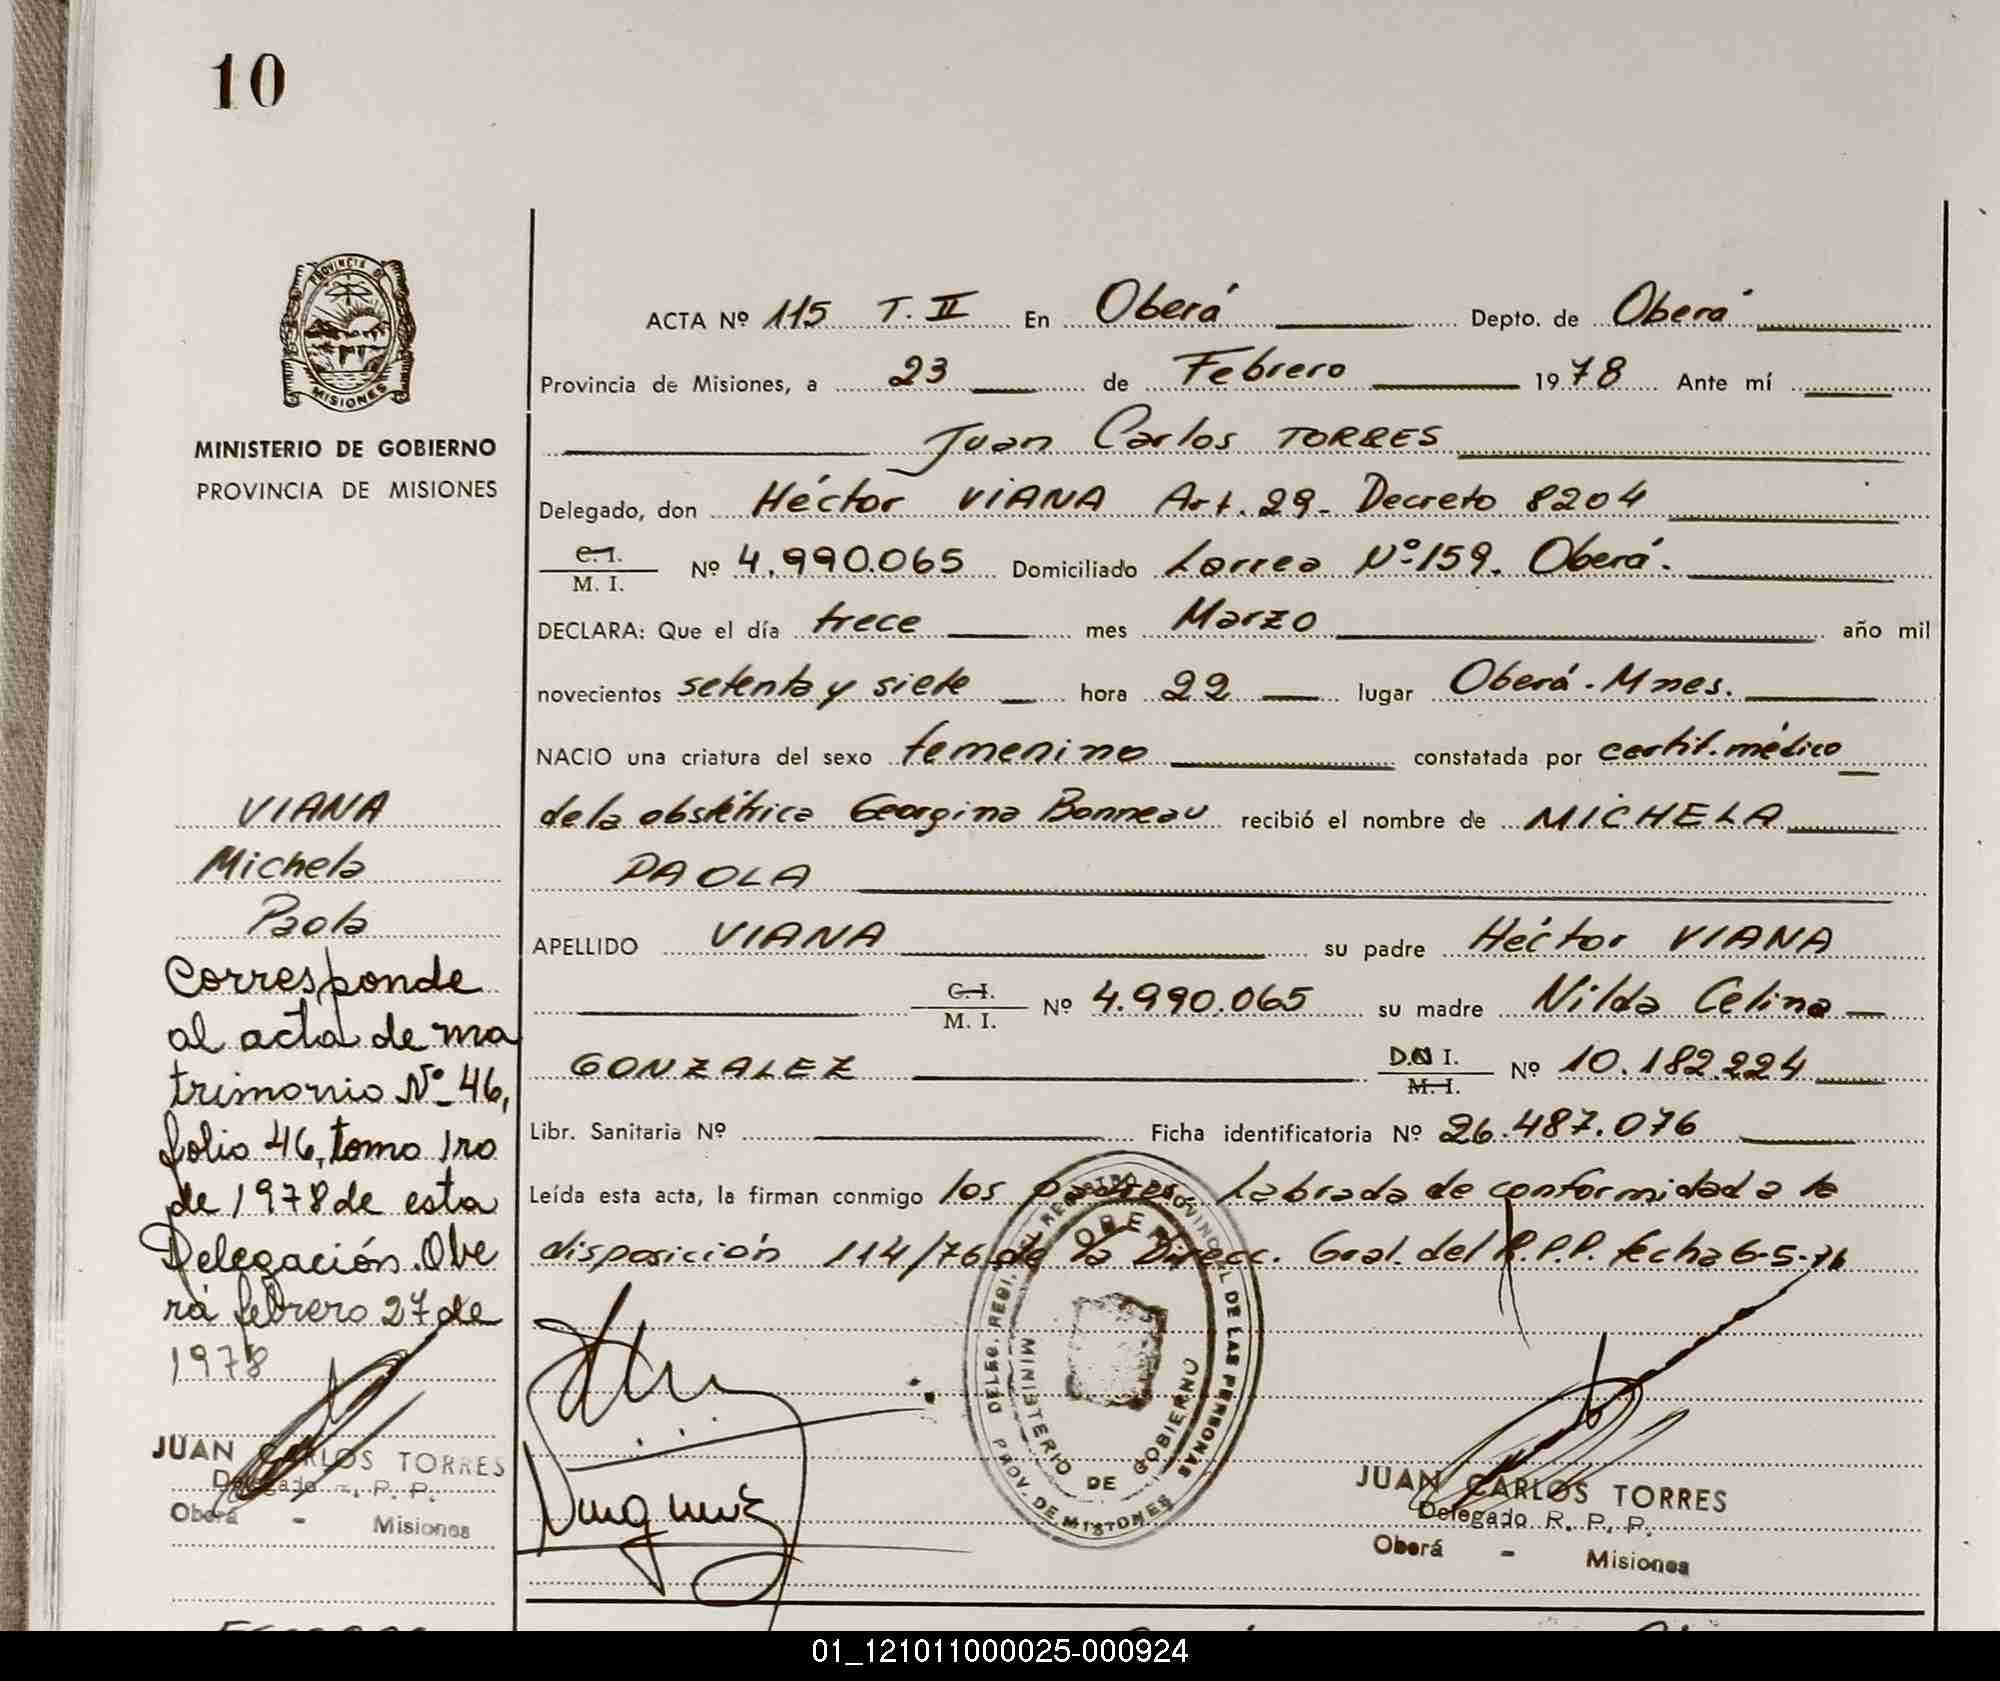 10
PROVINCIA DE
MISIONES
MINISTERIO DE GOBIERNO
PROVINCIA DE MISIONES
ACTA Nº 115 T. II En Oberá Depto. de Oberá
Provincia de Misiones, a 23 de Febrero 1978 Ante mí
Juan Carlos TORRES
Delegado, don Héctor VIANA Art. 29- Decreto 8204
C.I.
M. I. Nº 4.990.065 Domiciliado Larrea Nº 159. Oberá.
DECLARA: Que el día trece mes Marzo año mil
novecientos setenta y siete hora 22 lugar Oberá. Mnes.
NACIO una criatura del sexo femenino constatada por certif. médico
de la obstétrica Georgina Bonneau recibió el nombre de MICHELA
PAOLA
APELLIDO VIANA su padre Héctor VIANA
C.I.
M. I. Nº 4.990.065 su madre Nilda Celina
GONZALEZ D.N I.
M. I. Nº 10.182.224
Libr. Sanitaria Nº Ficha identificatoria Nº 26.487.076
Leída esta acta, la firman conmigo los padres. Labrada de conformidad a la
disposición 114/76 de la Direcc. Gral. del R.P.P. fecha 6-5-76
VIANA
Michela
Paola
Corresponde
al acta de ma
trimonio Nº 46,
folio 46, tomo 1ro
de 1978 de esta
Delegación. Obe
rá febrero 27 de
1978
JUAN CARLOS TORRES
Delegado R. P. P.
Oberá - Misiones
DELEG. REGISTRO PROVINCIAL DE LAS PERSONAS
OBERA
MINISTERIO DE GOBIERNO
PROV. DE MISIONES
JUAN CARLOS TORRES
Delegado R. P. P.
Oberá - Misiones
01_121011000025-000924